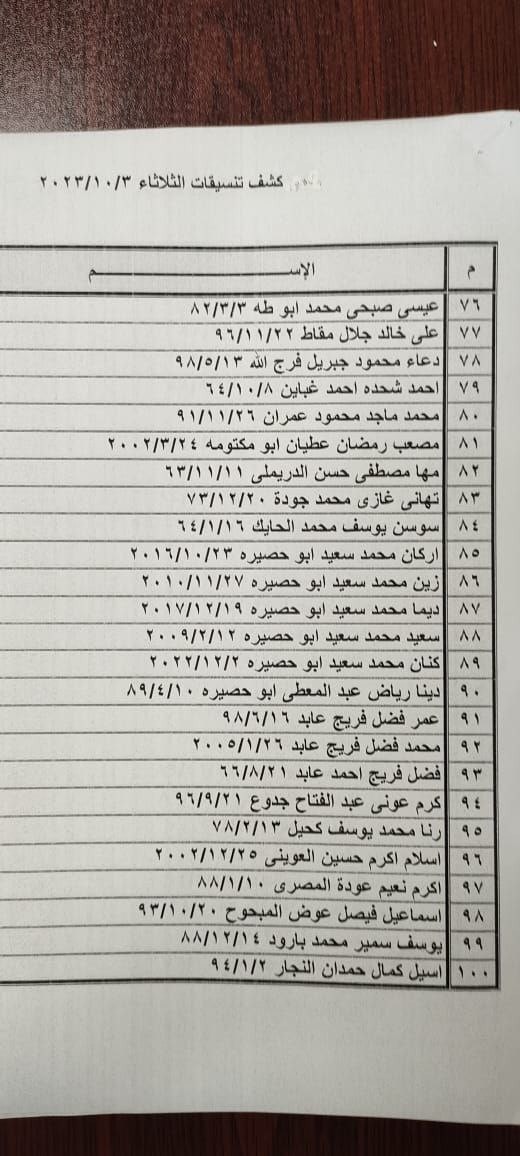 كشف تنسيقات الثلاثاء ٢٠٢٣/١٠/٣
م الإســـــــم
٧٦ عيسى صبحى محمد ابو طه ٨٢/٣/٣
٧٧ على خالد جلال مقاط ٩٦/١١/٢٢
٧٨ دعاء محمود جبريل فرج الله ٩٨/٥/١٣
٧٩ احمد شحده احمد غباين ٦٤/١٠/٨
٨٠ محمد ماجد محمود عمران ٩١/١١/٢٦
٨١ مصعب رمضان عطيان ابو مكتومه ٢٠٠٢/٣/٢٤
٨٢ مها مصطفى حسن الدريملى ٦٣/١١/١١
٨٣ تهانى غازى محمد جودة ٧٣/١٢/٢٠
٨٤ سوسن يوسف محمد الحايك ٦٤/١/١٦
٨٥ اركان محمد سعيد ابو حصيره ٢٠١٦/١٠/٢٣
٨٦ زين محمد سعيد ابو حصيره ٢٠١٠/١١/٢٧
٨٧ ديما محمد سعيد ابو حصيره ٢٠١٧/١٢/١٩
٨٨ سعيد محمد سعيد ابو حصيره ٢٠٠٩/٢/١٢
٨٩ كنان محمد سعيد ابو حصيره ٢٠٢٢/١٢/٢
٩٠ دينا رياض عبد المعطى ابو حصيره ٨٩/٤/١٠
٩١ عمر فضل فريج عابد ٩٨/٦/١٦
٩٢ محمد فضل فريج عابد ٢٠٠٥/١/٢٦
٩٣ فضل فريج احمد عابد ٦٦/٨/٢١
٩٤ كرم عونى عبد الفتاح جدوع ٩٦/٩/٢١
٩٥ رنا محمد يوسف كحيل ٧٨/٢/١٣
٩٦ اسلام اكرم حسين العوينى ٢٠٠٢/١٢/٢٥
٩٧ اكرم نعيم عودة المصرى ٨٨/١/١٠
٩٨ اسماعيل فيصل عوض المبحوح ٩٣/١٠/٢٠
٩٩ يوسف سمير محمد بارود ٨٨/١٢/١٤
١٠٠ اسيل كمال حمدان النجار ٩٤/١/٢